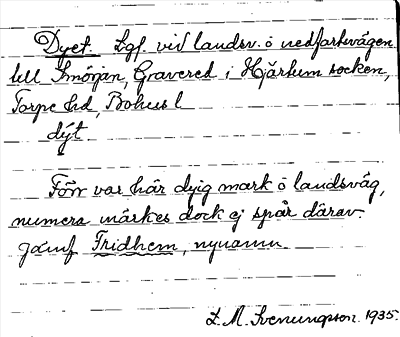 Dyet. Lgf. vid landsv. o nedfartsvägen
till Smörjan, Gravered i Hjärtum socken,
Torpe hd, Bohus l
dýt
Förr var här dyig mark o landsväg,
numera märkes dock ej spår därav.
Jämf Fridhem, nynamn.
L. M. Svenungsson. 1935.